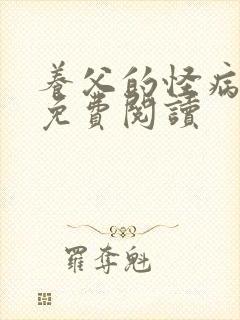 養父的怪病
免費閱讀
羅奪魁